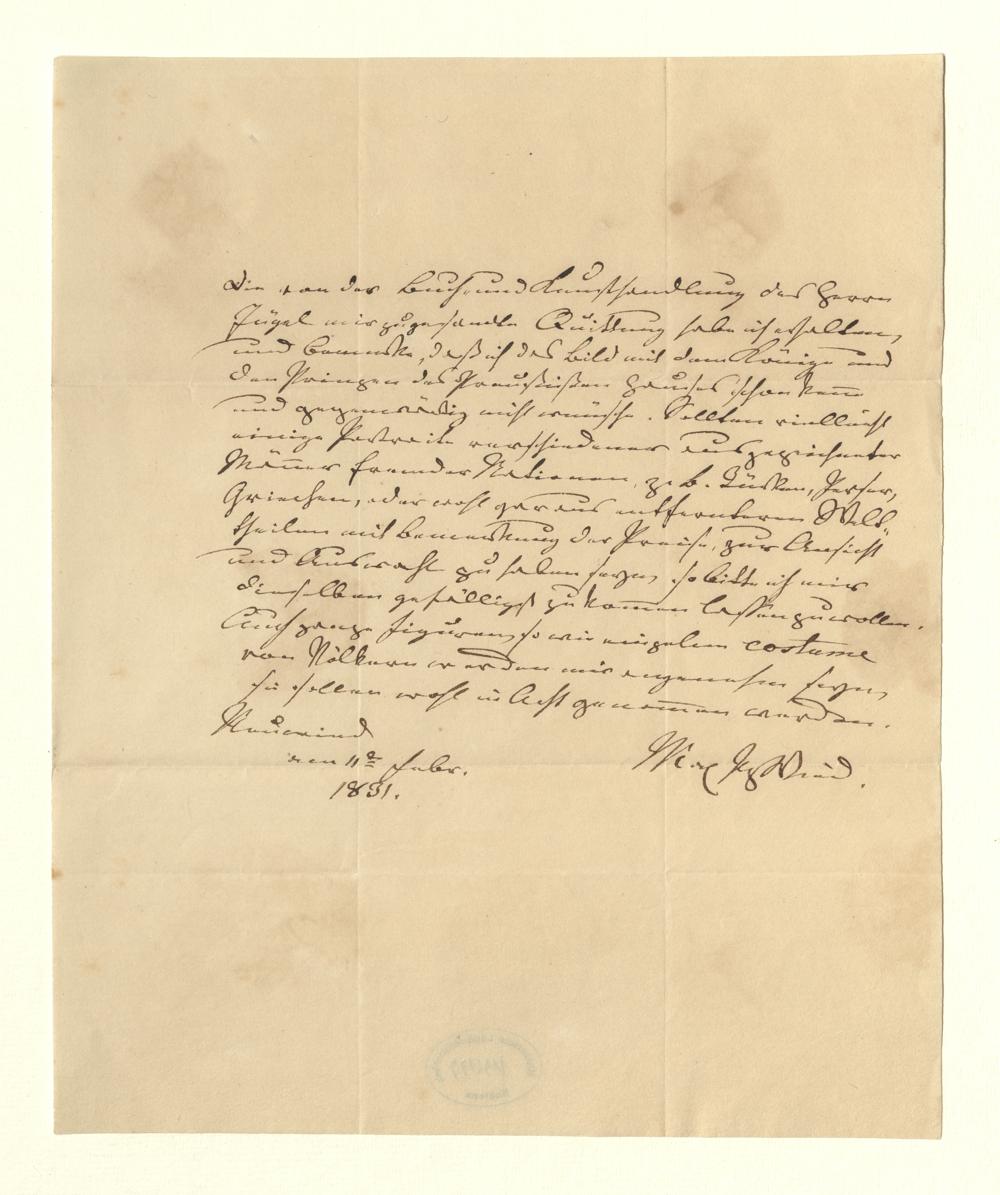 Die von der Buch- und Kunsthandlung des Herrn
Jügel mir zugesandte Quittung habe ich erhalten,
und bemerke, daß ich das Bild mit dem Könige und
den Prinzen des Preussischen Hauses schon kenne
und gegenwärtig nicht wünsche. Sollten vielleicht
einige Portraite verschiedener ausgezeichneter
Männer fremder Nationen, z. B. Türken, Perser,
Griechen, oder wohl gar aus entfernteren Welt-
theilen mit Bemerkung der Preise, zur Ansicht
und Auswahl zu haben seyn, so bitte ich mir
dieselben gefälligst zukommen lassen zu wollen.
Auch ganze Figuren, so wie einzelne costume
von Völkern werden mir angenehm seyn,
sie sollen wohl in Acht genommen werden.
Neuwied
den 11te Febr.
1831.
Max Pz Wied.